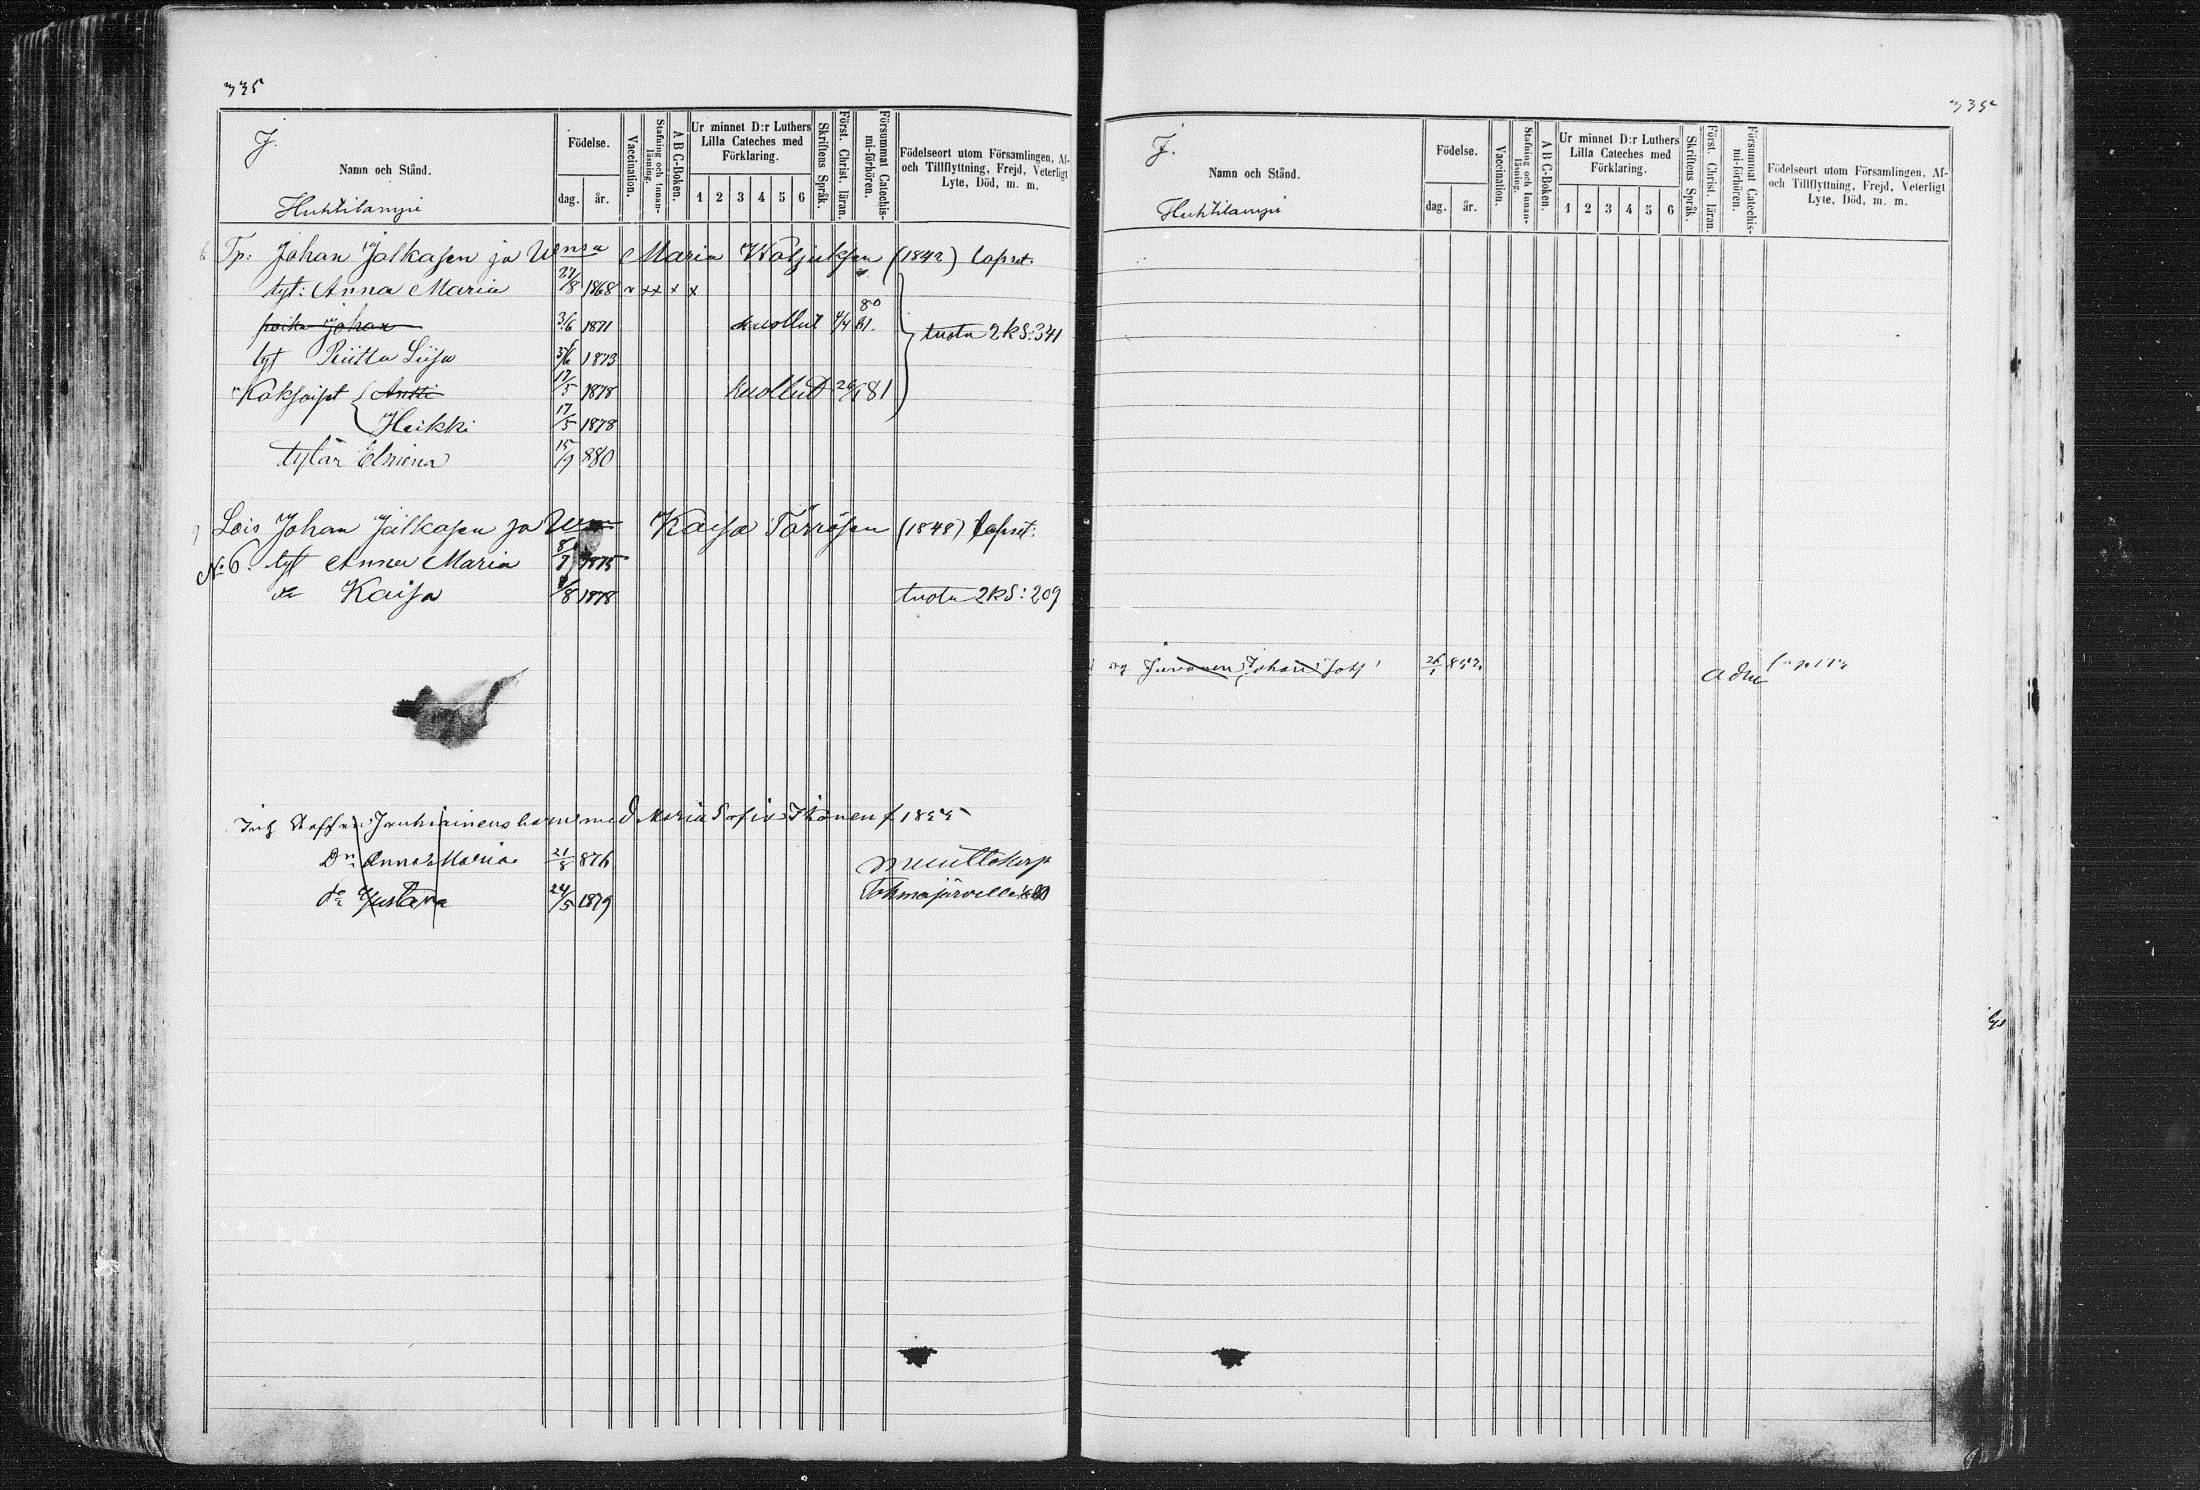 335
J.
Namn och Stånd.
Huhtilampi
Födelse.
dag. år.
Vaccination.
Stafning och Innanläsning.
A B C-Boken.
Ur minnet D:r Luthers
Lilla Cateches med
Förklaring.
1 2 3 4 5 6
Skriftens Språk.
Först. Christ. läran.
Försummat Catechismi-förhören.
Födelseort utom Församlingen, Af-
och Tillflyttning, Frejd, Veterligt
Lyte, Död, m. m.
6 Tp: Johan Jalkasen ja Wnsa Maria (1842) lapset.
tyt: Anna Maria 27/8 1868
poika Johan 3/6 1871 kuollut 4/4 81. tuota 2kS:341
tyt Riitta Liisa 1873
Kaksoiset Antti 17/5 1878 kuollut 81
Heikki 17/5 1878
tytär Elmina 15/9 880
Lois Johan Jalkasen ja Kaisa Törrösen (1848) lapset:
No. 6. tyt Anna Maria 1875
Kaisa 1878 tuota 2kS: 209
Inh Staffan Jauhiainens barn med Maria Sofia Ikonen f 1855
Dr Anna Maria 21/8 876 muuttokirja
do Gustava 24/5 1879 Tohmajärvelle
335
J.
Namn och Stånd.
Huhtilampi
Födelse.
dag. år.
Vaccination.
Stafning och Innanläsning.
A B C-Boken.
Ur minnet D:r Luthers
Lilla Cateches med
Förklaring.
1 2 3 4 5 6
Skriftens Språk.
Först. Christ. läran.
Försummat Catechismi-förhören.
Födelseort utom Församlingen, Af-
och Tillflyttning, Frejd, Veterligt
Lyte, Död, m. m.
Juvonen Johan